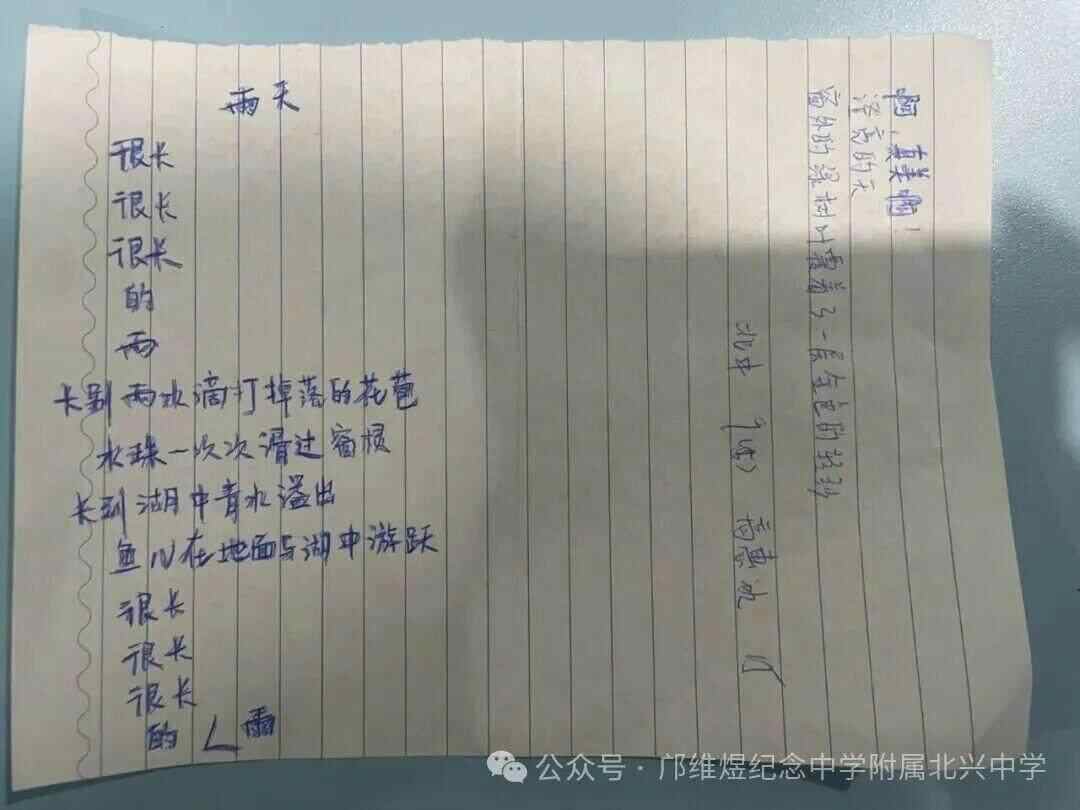 雨天
很长
很长
很长
的
雨
长到雨水滴打掉落的花苞
水珠一次次滑过窗棂
长到湖中青水溢出
鱼儿在地面与湖中游跃
很长
很长
很长
的 雨
啊，真美啊！
的天
窗外的绿树叶着了一层金色的轻纱
北中 高惠冰
公众号 · 邝维煜纪念中学附属北兴中学